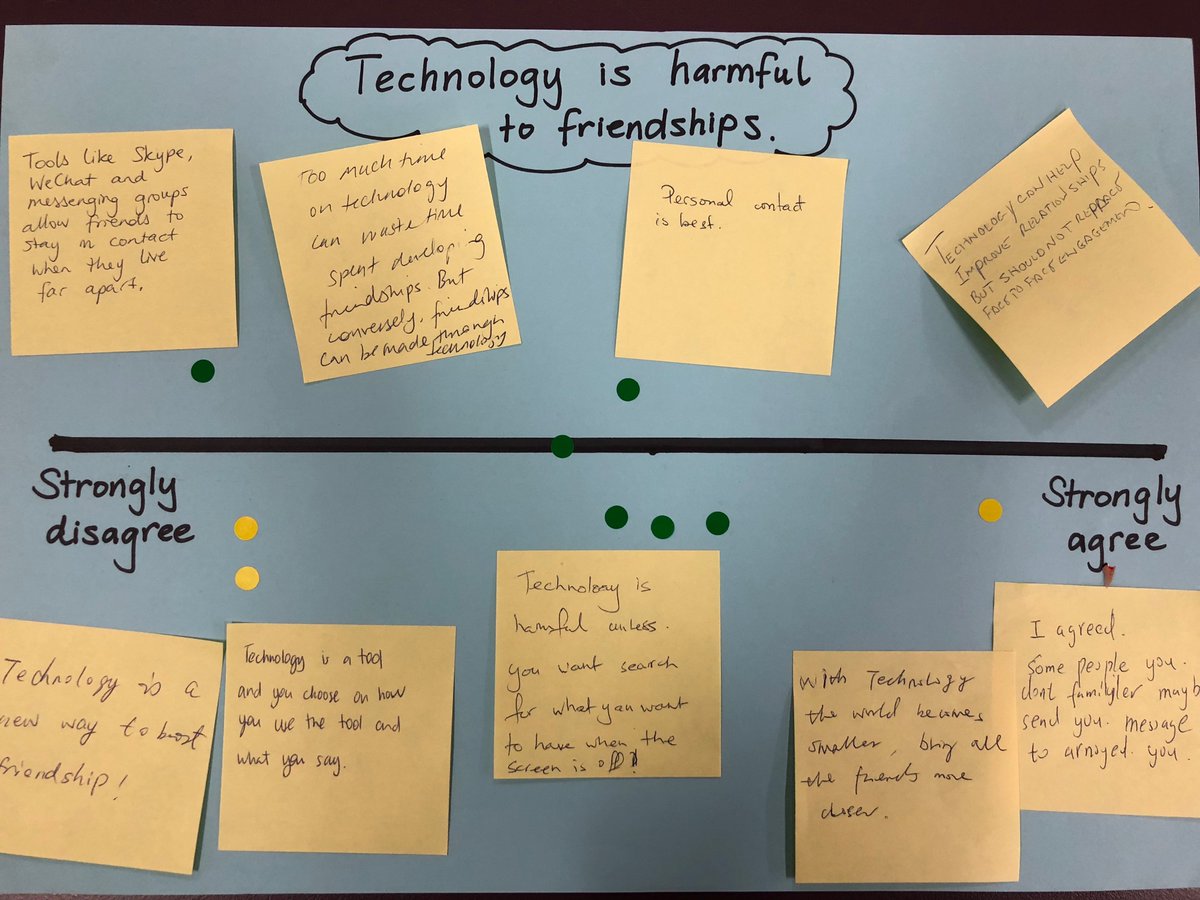 Technology is harmful
to friendships.
Tools like Skype,
WeChat and
messenging groups
allow friends to
stay in contact
when they live
far apart.
TOO much time
on technology
can waste time
spent developing
friendships. But
conversely, friendships
can be made through
technology
Personal contact
is best.
TECHNOLOGY CAN HELP
IMPROVE RELATIONSHIPS
BUT SHOULD NOT REPLACE
FACE TO FACE ENGAGEMENT.
Strongly
disagree
Strongly
agree
Technology is a
new way to boost
friendship!
Technology is a tool
and you choose on how
you use the tool and
what you say.
Technology is
harmful unless.
you want search
for what you want
to have when the
screen is off!
With Technology
the world becomes
smaller, bring all
the friends more
closer.
I agreed.
Some people you.
dont familyler mayb
send you. message
to annoyed. you.